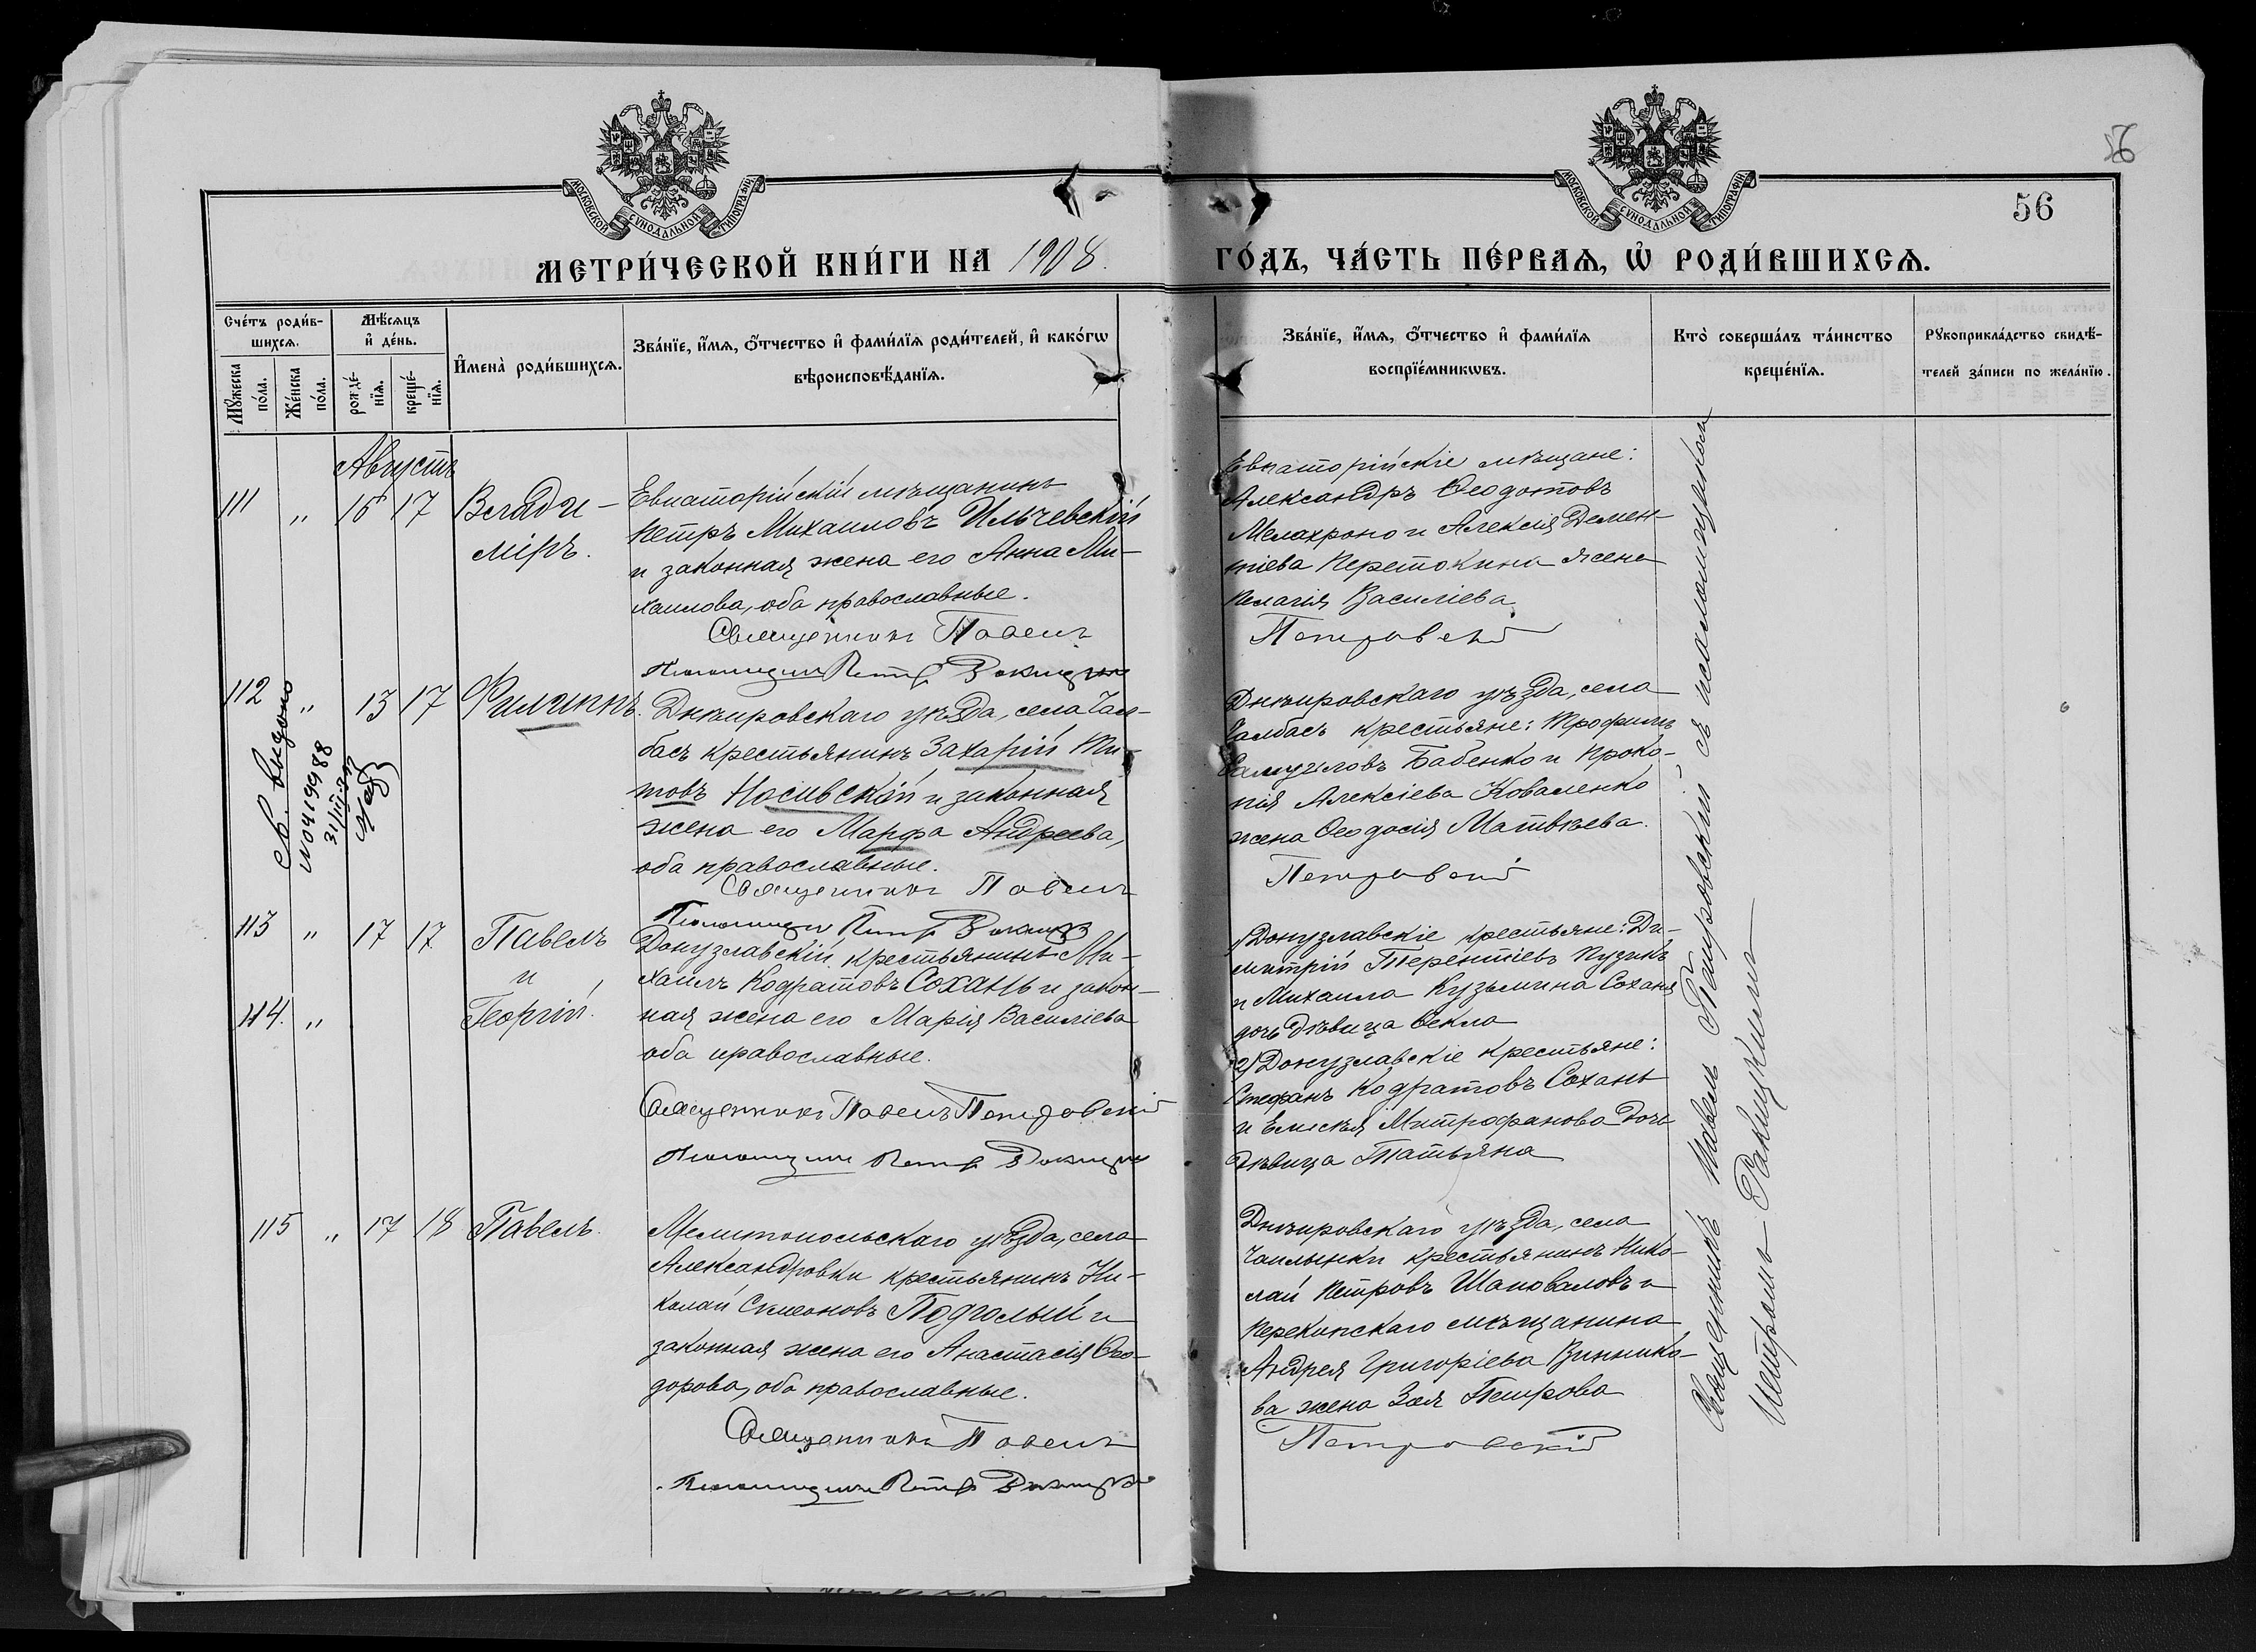 56
56
МОСКОВСКОЙ СѴНОДАЛЬНОЙ ТИПОГРАФІИ
МОСКОВСКОЙ СѴНОДАЛЬНОЙ ТИПОГРАФІИ
МЕТРИ́ЧЕСКОЙ КНИ́ГИ НА 1908.
ГО́ДЪ, ЧА́СТЬ ПЕ́РВАѦ, Ѽ РОДИ́ВШИХСѦ.
Сче́тъ роди́в-
шихсѧ.
Мꙋ́жеска
по́ла.
Же́нска
по́ла.
Мѣ́сѧцъ
и҆ де́нь.
рожде́-
нїѧ.
креще́-
нїѧ.
И҆мена̀ роди́вшихсѧ.
Зва́нїе, и҆́мѧ, ѻ҆́тчество и҆ фами́лїѧ роди́телей, и҆ како́гѡ
вѣроисповѣ́данїѧ.
Зва́нїе, и҆́мѧ, ѻ҆́тчество и҆ фами́лїѧ
воспрїе́мникѡвъ.
Кто̀ соверша́лъ та́инство
креще́нїѧ.
Рꙋкоприкла́дство свидѣ́-
телей за́писи по жела́нїю.
Августъ
111 " 15 17 Влади-
міръ.
Евпаторійскій мѣщанинъ
Петръ Михаиловъ Ильчевскій
и законная жена его Анна Ми-
хаилова, оба православные.
Священникъ Павелъ
Псаломщикъ Петръ
Евпаторійскіе мѣщане:
Александръ Ѳеодотовъ
Мелахроно и Алексія Демен-
тіева Перетокина жена
Пелагія Василіева
Петровскій
112 " 13 17 Филиппъ.
Св. выдано
N 0419988
Днѣпровскаго уѣзда, села Чал-
басъ крестьянинъ Захарій Ти-
товъ Носивскій и законная
жена его Марфа Андреева,
оба православные.
Священникъ Павелъ
Псаломщикъ Петръ
Днѣпровскаго уѣзда, села
Чалбасъ крестьяне: Трофимъ
Самуиловъ Бабенко и Проко-
пія Алексіева Коваленко
жена Ѳеодосія Матвѣева.
Петровскій
113 " 17 17 Павелъ
и
114. " Георгій.
Донузлавскій крестьянинъ Ми-
хаилъ Кодратовъ Сохань и закон-
ная жена его Марія Василіева
оба православные.
Священникъ Павелъ Петровскій
Псаломщикъ Петръ
1) Донузлавскіе крестьяне: Ди-
митрій Терентіевъ Пузикъ
и Михаила Кузьмина Соханя
дочь дѣвица Ѳекла
2) Донузлавскіе крестьяне:
Стефанъ Кодратовъ Сохань
и Елисѣя Митрофанова дочь
дѣвица Татьяна
115 " 17 18 Павелъ.
Мелитопольскаго уѣзда, села
Александровки крестьянинъ Ни-
колай Симеоновъ Подголый и
законная жена его Анастасія Ѳео-
дорова, оба православные.
Священникъ Павелъ
Псаломщикъ Петръ
Днѣпровскаго уѣзда, села
Чаплынки крестьянинъ Нико-
лай Петровъ Шаповаловъ и
Перекопскаго мѣщанина
Андрея Григоріева Виннико-
ва жена Зоя Петрова
Петровскій
Священникъ Павелъ Петровскій съ псаломщикомъ
Петромъ Ракицкимъ